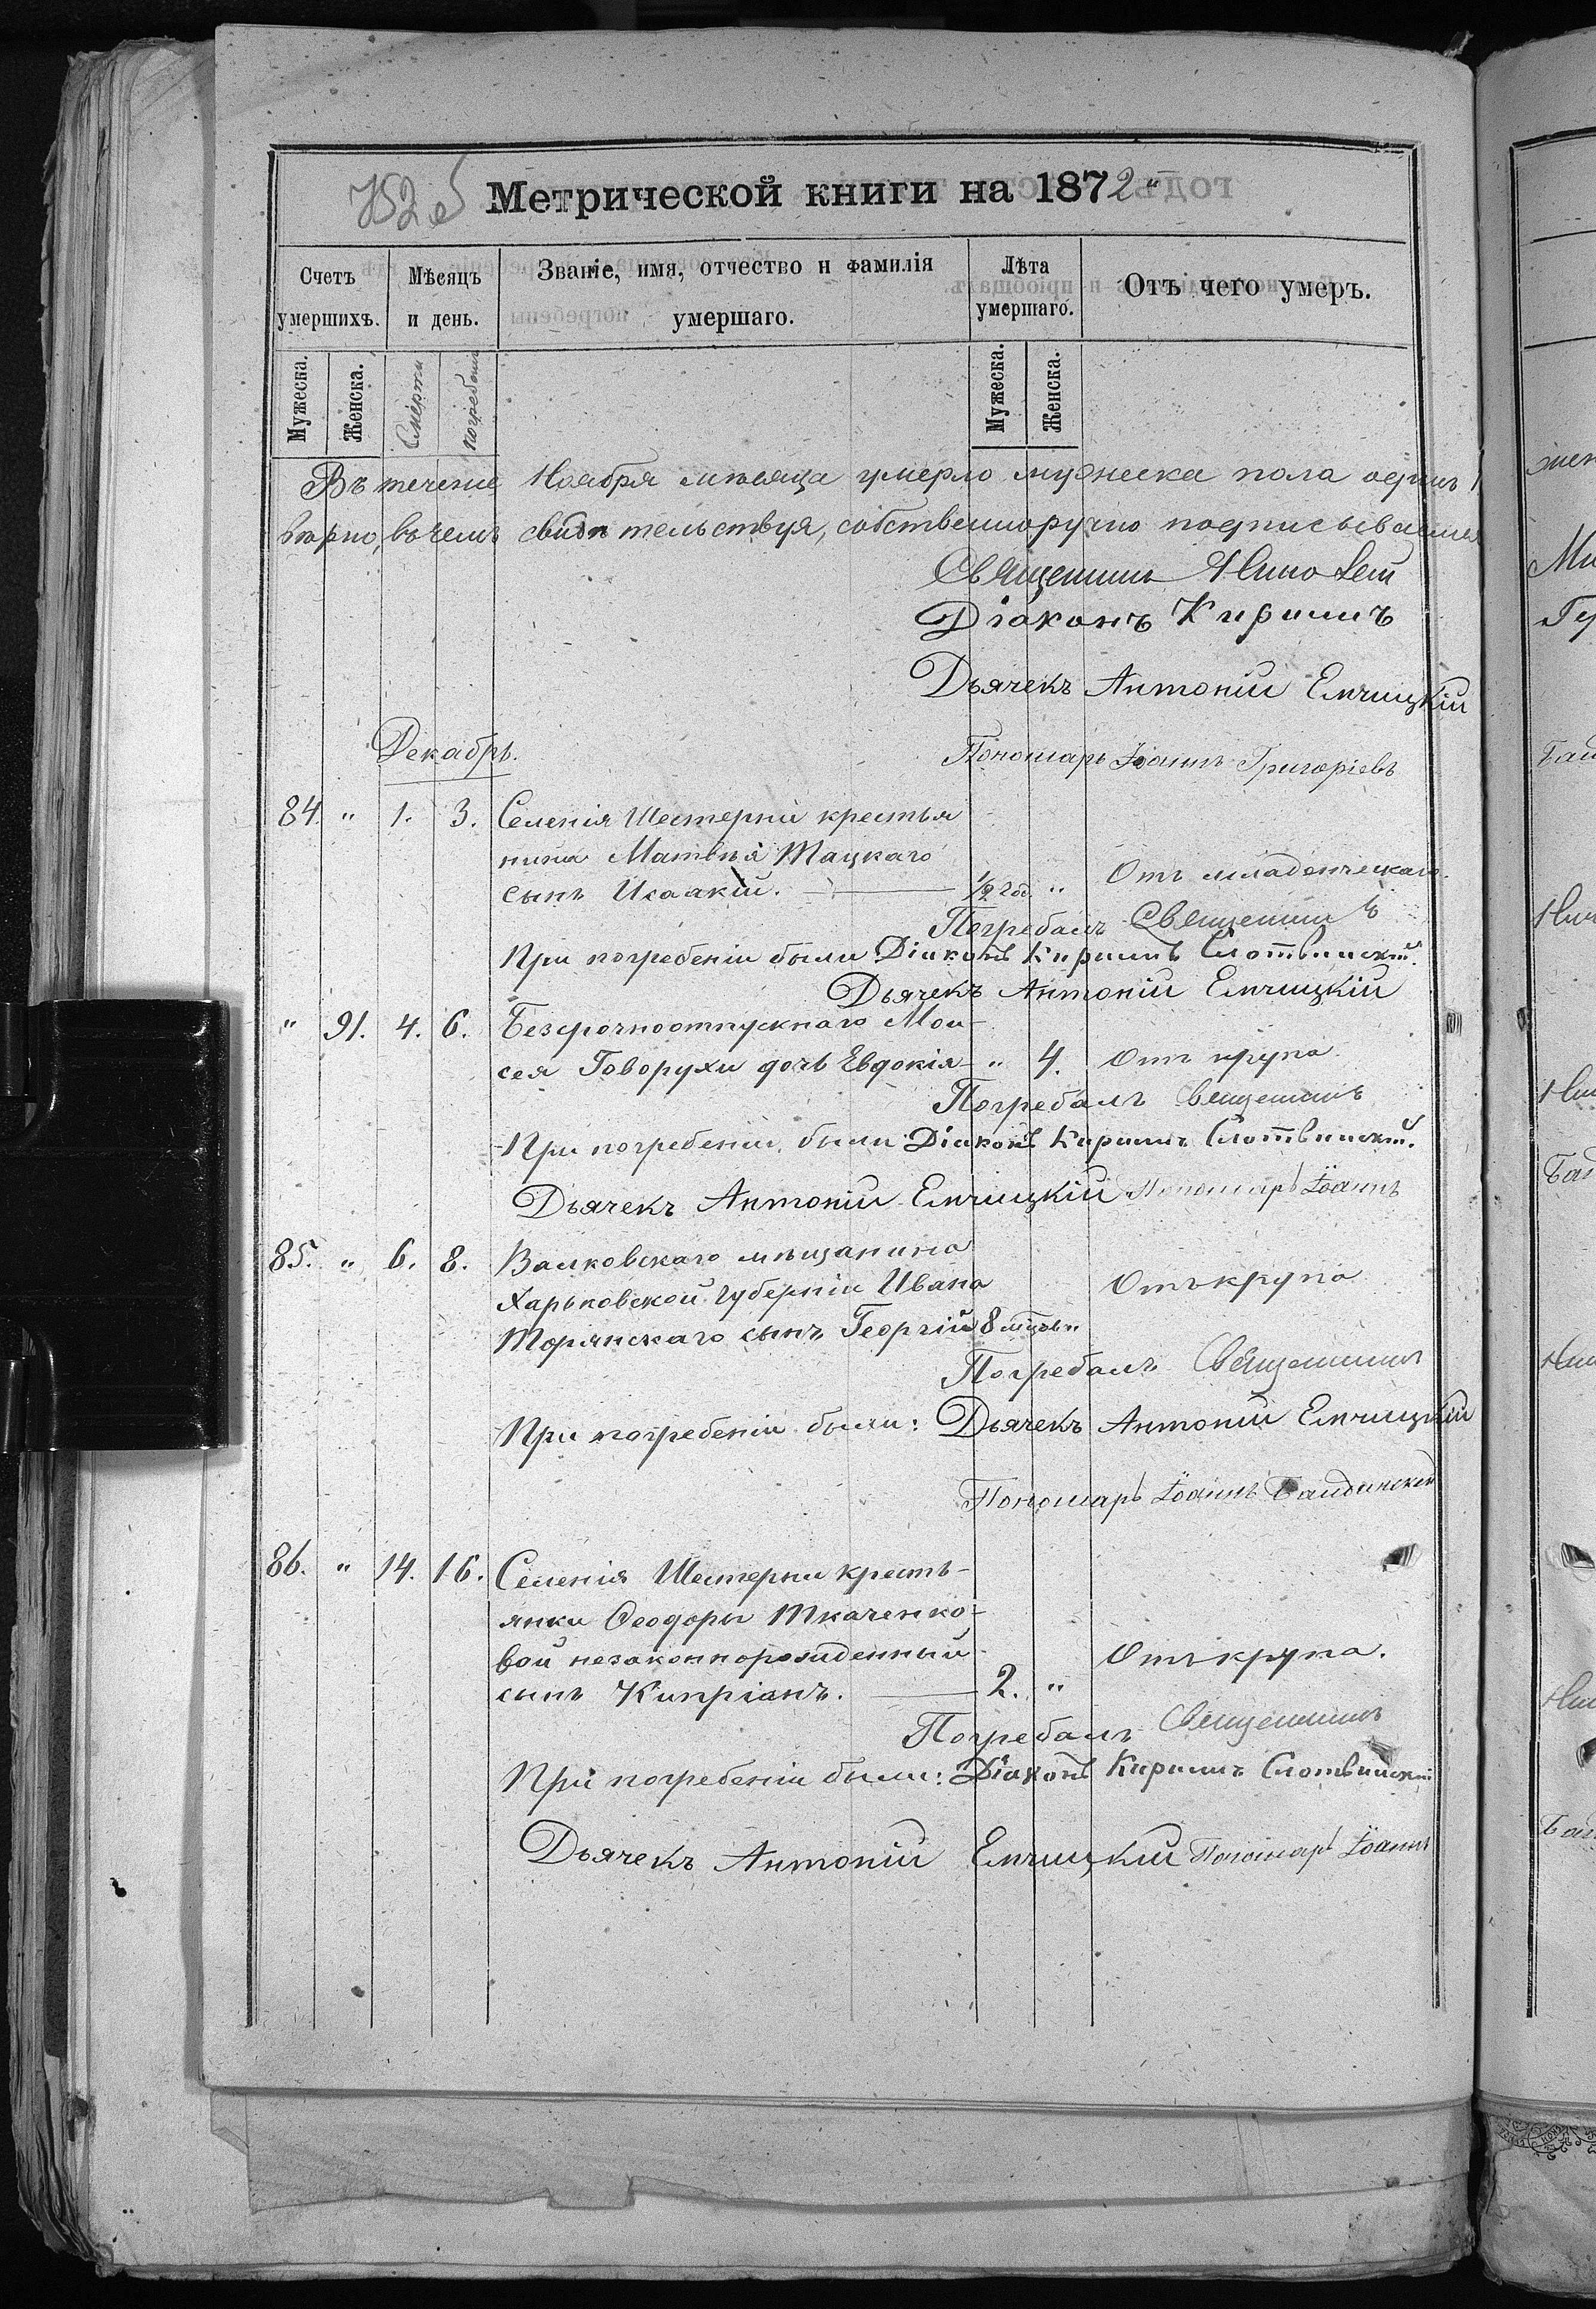 Метрической книги на 1872
Счетъ умершихъ.
Мѣсяцъ и день.
Званіе, имя, отчество и фамилія умершаго.
Лѣта умершаго.
Отъ чего умеръ.
Мужеска.
Женска.
Смерти
погребенія
Мужеска.
Женска.
Въ теченіе Ноября мѣсяца умерло мужеска пола одинъ 1
вѣрно, въ чемъ свидѣтельствуя, собственноручно подписываемся
Священникъ
Діаконъ Кириллъ
Дьячекъ Антоній Емчицкій
Декабрь.
Пономарь Іоаннъ Григоріевъ
84. " 1. 3. Селенія Шестерни крестья
нина Матвѣя Тацкаго
сынъ Исаакій. ½ год. " Отъ младенческаго.
Погребалъ Священникъ
При погребеніи были Діаконъ Кириллъ Слотвинскій.
Дьячекъ Антоній Емчицкій
" 91. 4. 6. Безсрочноотпускнаго Мои-
сея Говорухи дочь Евдокія " 4. Отъ крупа
Погребалъ Священникъ
При погребеніи были Діаконъ Кириллъ Слотвинскій.
Дьячекъ Антоній Емчицкій Пономарь Іоаннъ
85. " 6. 8. Валковскаго мѣщанина
Харьковской губерніи Ивана Отъ крупа
Торянскаго сынъ Георгій 8 мѣсяц. "
Погребалъ Священникъ
При погребеніи были: Дьячекъ Антоній Емчицкій
Пономарь Іоаннъ
86. " 14. 16. Селенія Шестерни кресть-
янки Ѳеодоры Ткаченко-
вой незаконнорожденный Отъ крупа.
сынъ Кипріанъ. 2. "
Погребалъ Священникъ
При погребеніи были: Діаконъ Кириллъ Слотвинскій
Дьячекъ Антоній Емчицкій Пономарь Іоаннъ